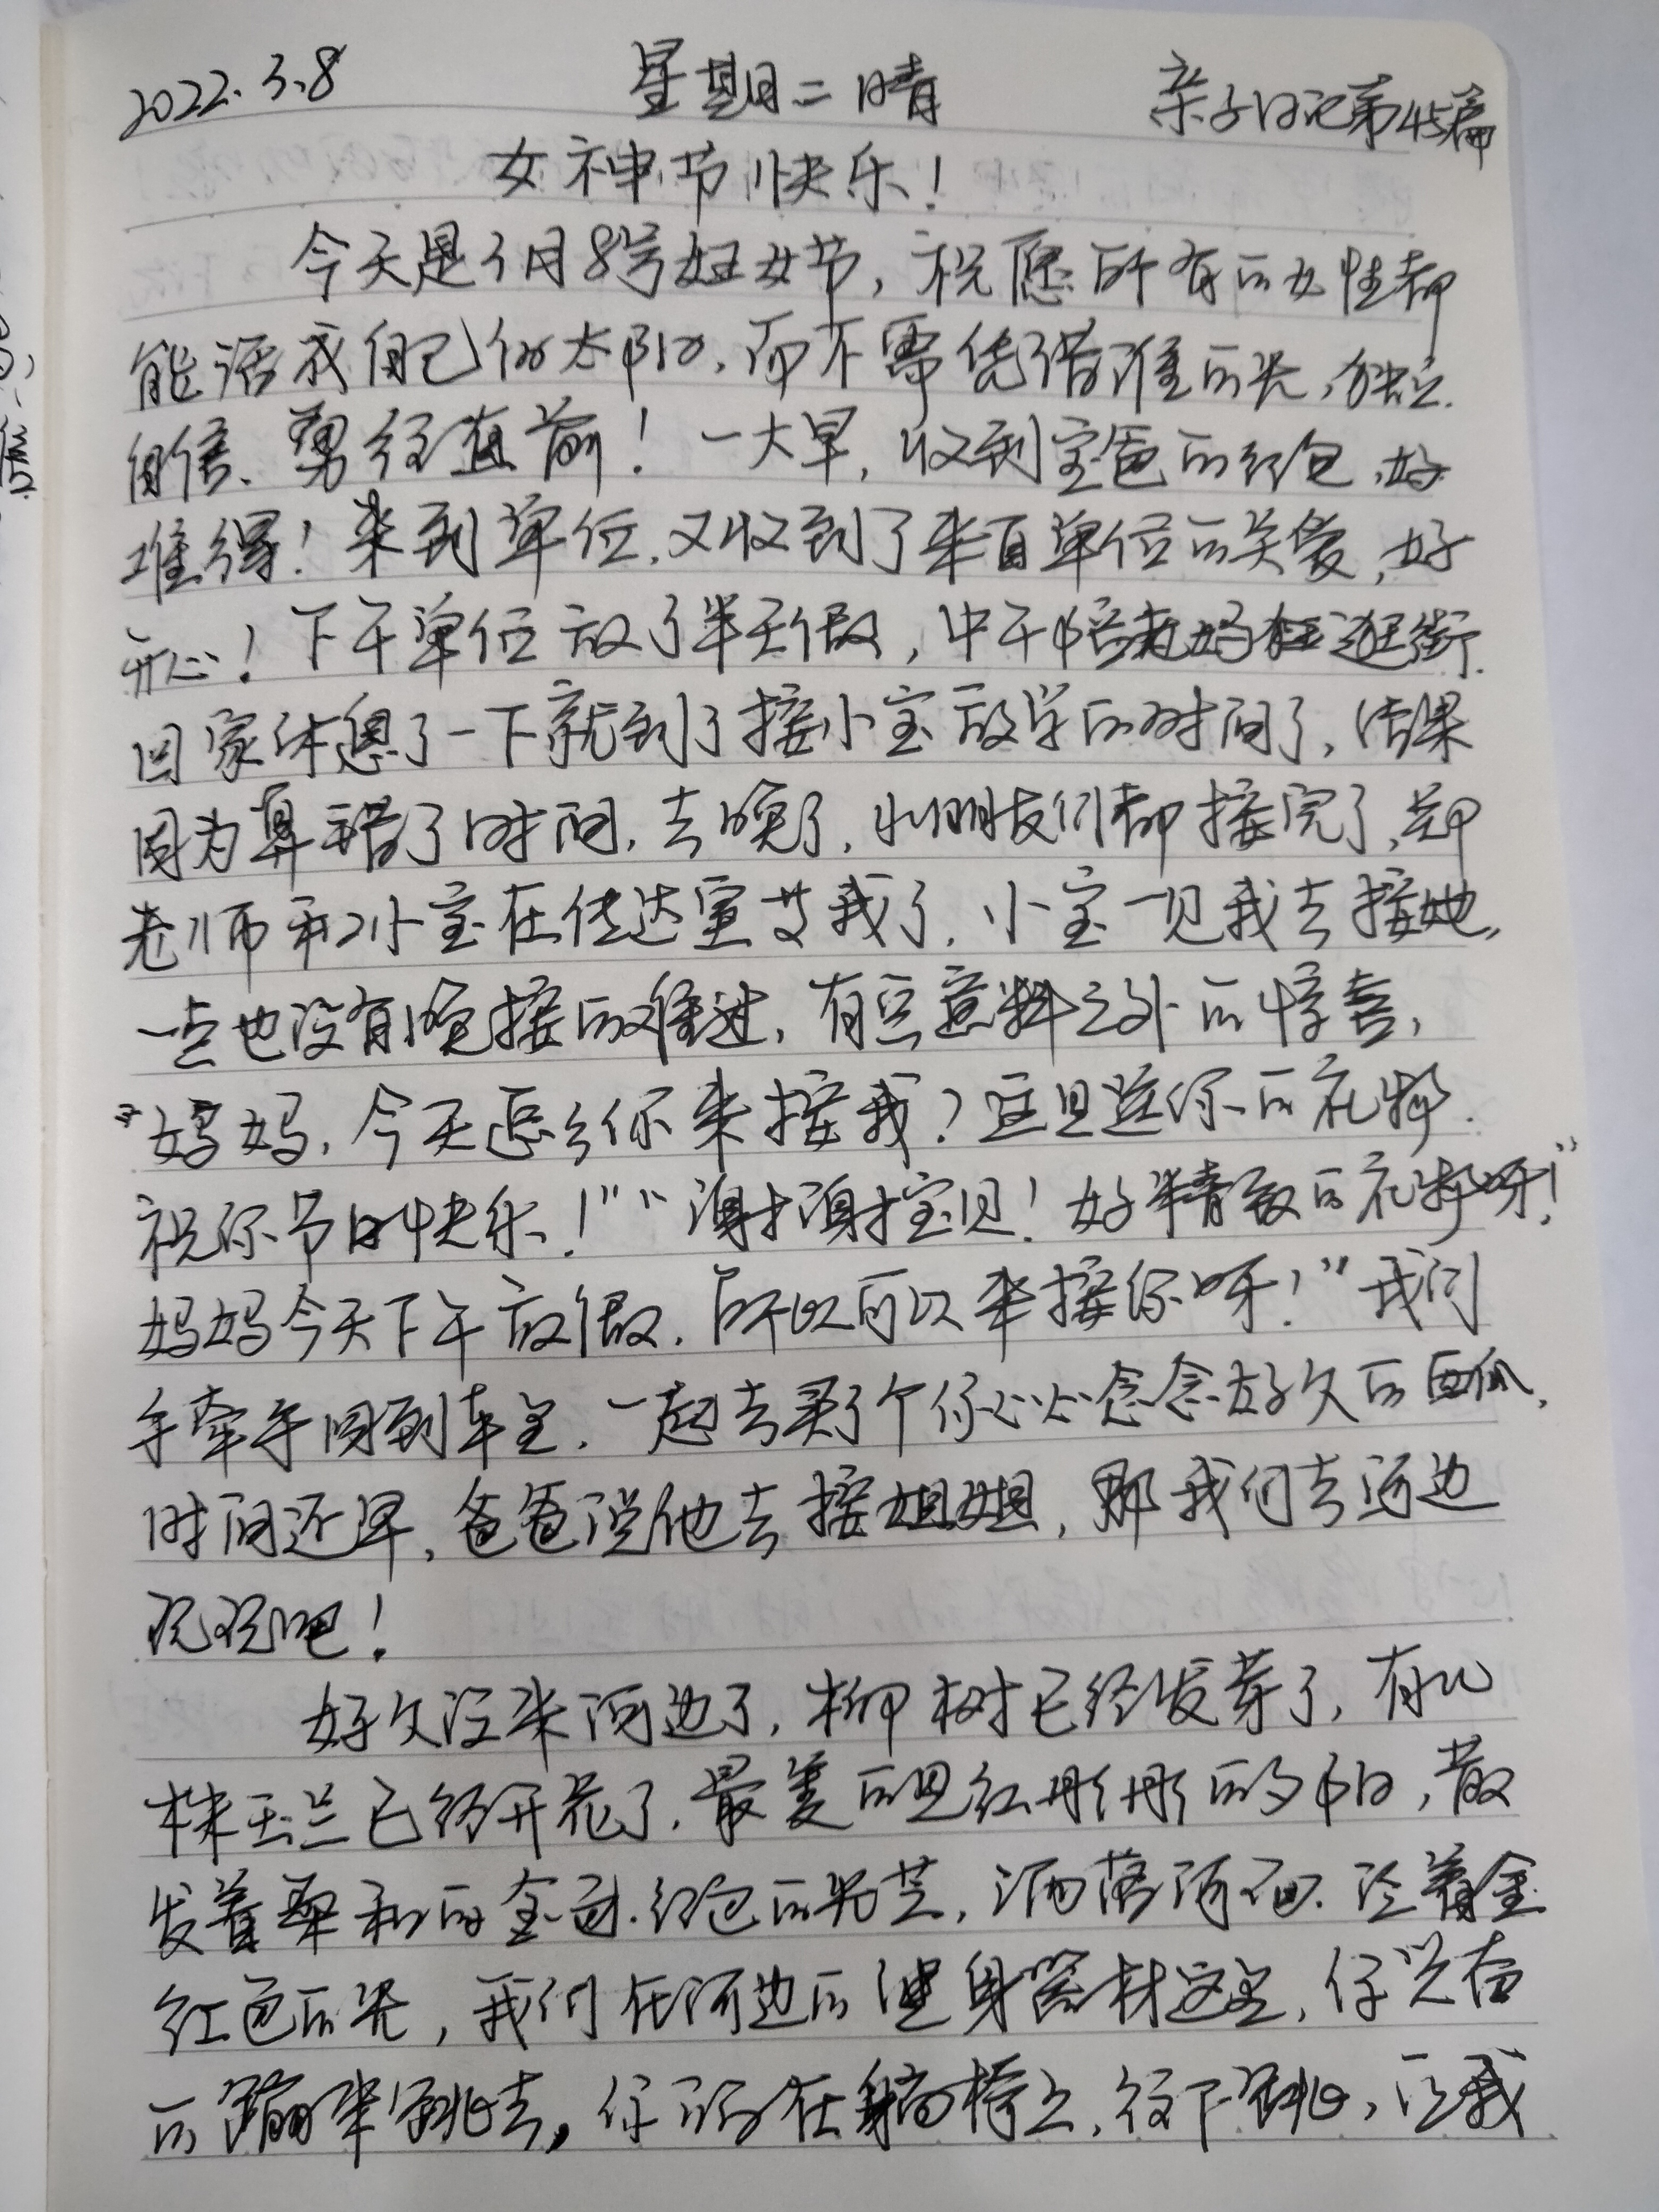 2022.3.8 星期二 晴 亲子日记第45篇
女神节快乐！
今天是3月8号妇女节，祝愿所有的女性都
能活成自己的太阳，而不需凭借谁的光，独立、
自信、勇往直前！一大早，收到宝爸的红包，好
难得！来到单位，又收到了来自单位的关爱，好
开心！下午单位放了半天假，中午陪老妈狂逛街，
回家休息了一下就到了接小宝放学的时间了，结果
因为算错了时间，去晚了，小朋友们都接完了，
老师和小宝在传达室等我了，小宝一见我去接她，
一点也没有晚接的难过，有点意料之外的惊喜，
“妈妈，今天怎么你来接我？这是送你的花哟，
祝你节日快乐！”“谢谢宝贝！好精致的花哟呀！”
妈妈今天下午放假，所以可以来接你呀！”我们
手牵手回到车里，一起去买了个你心心念念好久的西瓜，
时间还早，爸爸说他去接姐姐，那我们去河边
玩玩吧！
好久没来河边了，柳树已经发芽了，有几
株玉兰已经开花了，最美的是红彤彤的夕阳，散
发着柔和的金黄、红色的光芒，洒落河面、泛着金
红色的光，我们在河边的健身器材这里，你兴奋
的蹦来跳去，你在躺椅上，往下跳，让我